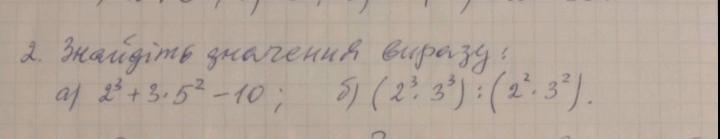 2. Знайдіть значення виразу:
а) 2³ + 3 · 5² - 10 ; б) (2³ · 3³) : (2² · 3²).